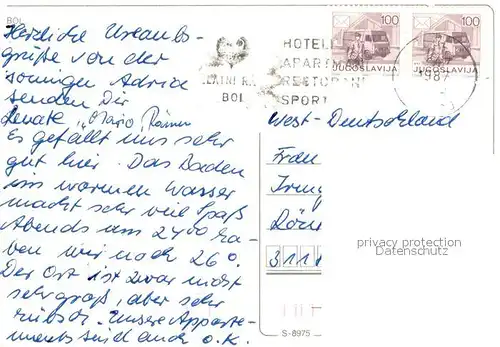 BOL
Herzliche Urlaubs-
grüße von der
sonnigen Adria
senden Dir
Renate, Mario, Rainer
Es gefällt uns sehr
gut hier. Das Baden
im warmen Wasser
macht sehr viel Spaß
Abends um 24 00 ha-
ben wir noch 26°.
Der Ort ist zwar nicht
sehr groß, aber sehr
hübsch. Unsere Apparte-
ments sind auch o.K.
100
JUGOSLAVIJA
100
JUGOSLAVIJA
BOL
HOTELI
SPORT
987
West-Deutschland
Frau
311
privacy protection
Datenschutz
S-8975